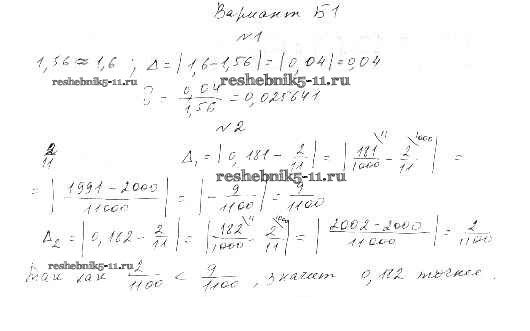 Вариант Б1
№1
1,56 ≈ 1,6 ; Δ = |1,6 - 1,56| = |0,04| = 0,04
reshebnik5-11.ru
δ = 0,04/1,56 = 0,025641
№2
2/11 Δ₁ = |0,181 - 2/11| = |181/1000 \11 - 2/11 \1000| =
reshebnik5-11.ru
= |1991 - 2000/11000| = |- 9/1100| = 9/1100
Δ₂ = |0,182 - 2/11| = |182/1000 \11 - 2/11 \1000| = |2002 - 2000/11000| = 2/1100
reshebnik5-11.ru
Так как 2/1100 < 9/1100, значит 0,182 точнее.